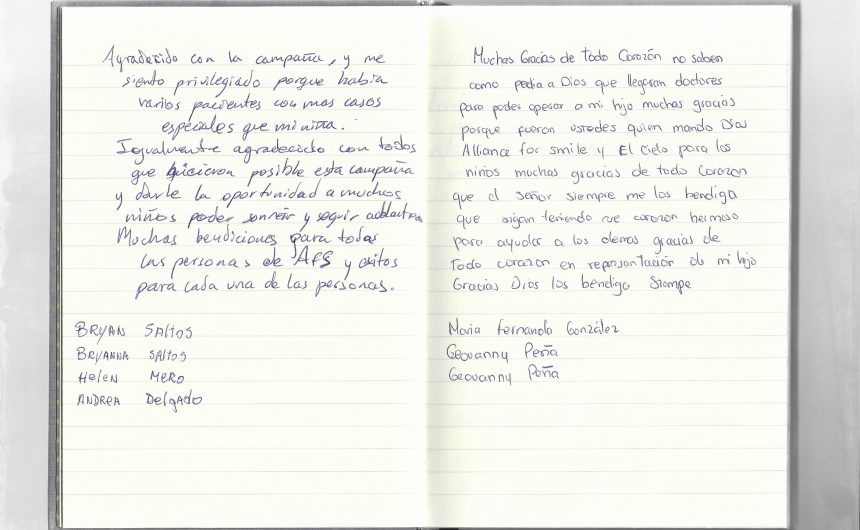 Agradecido con la campaña, y me
siento privilegiado porque habia
varios pacientes con mas casos
especiales que mi niña.
Igualmente agradecido con todos
que hicieron posible esta campaña
y darle la oportunidad a muchos
niños poder sonreir y seguir adelante
Muchas bendiciones para todas
las personas de AFS y exitos
para cada una de las personas.
BRYAN SAltos
BRYANNA SAltos
Helen MERO
ANDREA DelgADO
Muchas Gracias de todo Corazón no saben
como pedia a Dios que llegaran doctores
para poder operar a mi hijo muchas gracias
porque fueron ustedes quien mando Dios
Alliance for smile y El Cielo para los
niños muchas gracias de todo Corazon
que el señor siempre me los bendiga
que sigan teniendo ese corazon hermoso
para ayudar a los demas gracias de
todo corazon en representación de mi hijo
Gracias Dios los bendiga Siempe
Maria Fernanda González
Geovanny Peña
Geovanny Peña